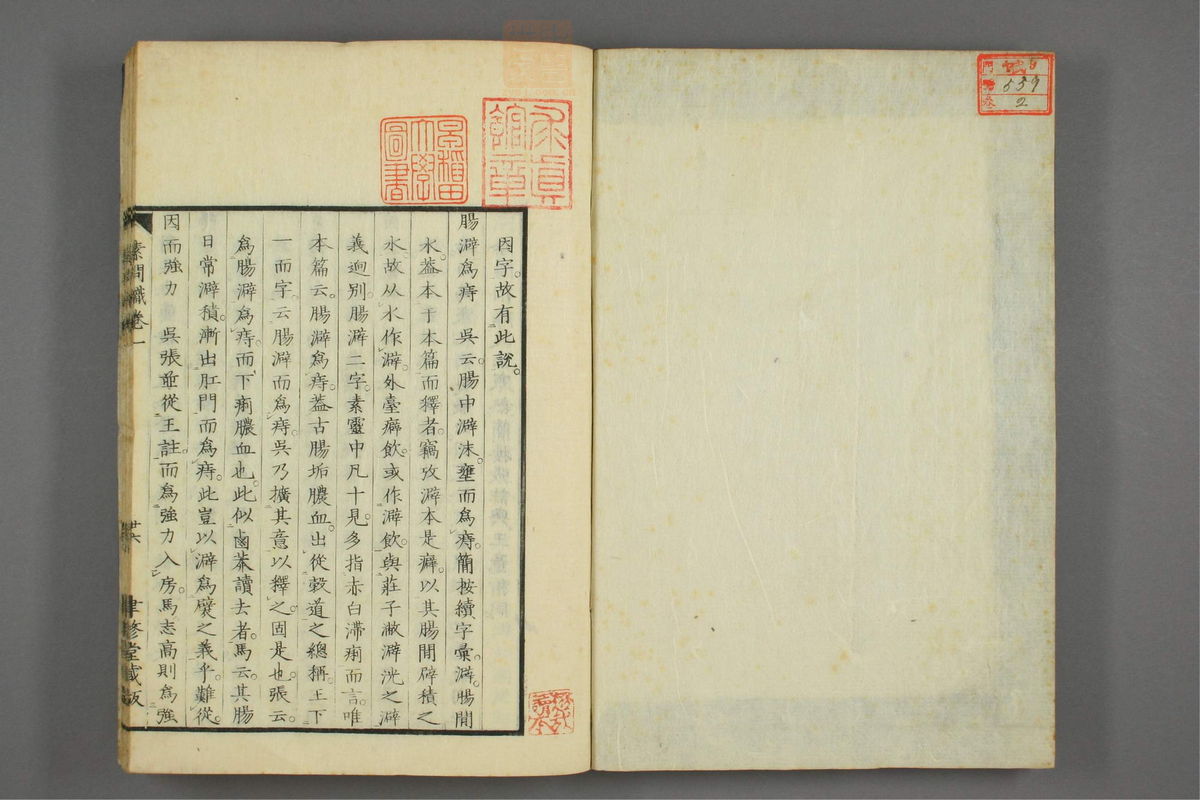 因字。故有此說。
腸澼爲痔　吳云。腸中澼沫。壅而爲痔。簡按續字彙。澼。腸間
水。葢本于本篇而釋者。竊攷澼本是癖。以其腸間辟積之
水故从水作澼。外臺癖飲。或作澼飲。與莊子洴澼洸之澼
義逈別。腸澼二字。素靈中凡十見。多指赤白滯痢而言。唯
本篇云。腸澼爲痔。葢古腸垢膿血。出從穀道之總稱。王下
一而字。云腸澼而爲痔。吳乃擴其意以釋之。固是也。張云。
爲腸澼爲痔。而下痢膿血也。此似鹵莽讀去者。馬云。其腸
日常澼積。漸出肛門而爲痔。此豈以澼爲襞之義乎。難從。
因而強力　吳張並從王註。而爲強力入房。馬志高則爲強
素問識卷一
廿六
聿修堂藏版
早稻田大學圖書
門
號 559
卷 2